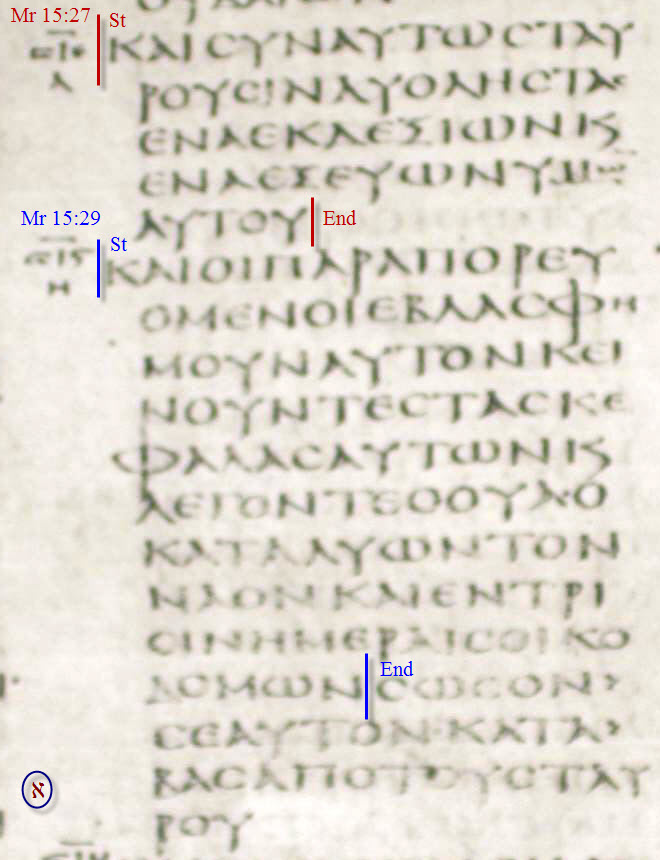 Mr 15:27 St
CΙΕ
Α
ΚΑΙCΥΝΑΥΤΩCΤΑΥ
ΡΟΥCΙΝΔΥΟΛΗCΤΑC
ΕΝΑΕΚΔΕΞΙΩΝϏ
ΕΝΑΕΞΕΥΩΝΥΜΩ
ΑΥΤΟΥ End
Mr 15:29 St
CΙϚ
Η
ΚΑΙΟΙΠΑΡΑΠΟΡΕΥ
ΟΜΕΝΟΙΕΒΛΑCΦΗ
ΜΟΥΝΑΥΤΟΝΚΕΙ
ΝΟΥΝΤΕCΤΑCΚΕ
ΦΑΛΑCΑΥΤΩΝϏ
ΛΕΓΟΝΤΕCΟΟΥΑ·Ο
ΚΑΤΑΛΥΩΝΤΟΝ
ΝΑΟΝΚΑΙΕΝΤΡΙ
CΙΝΗΜΕΡΑΙCΟΙΚΟ
ΔΟΜΩΝ End CΩCΟΝ>
CΕΑΥΤΟΝ·ΚΑΤΑ>
ΒΑCΑΠΟΤΟΥCΤΑΥ
ΡΟΥ
א